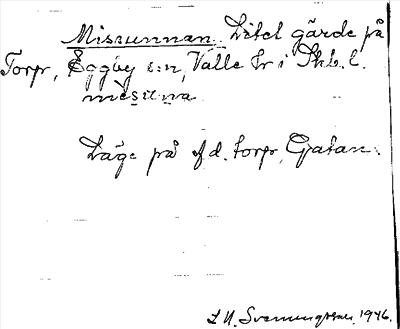 Missunnan. Litet gärde på
Torpr, Eggby s:n, Valle hr i Skb. l.
mìsuna
Läge på f.d. torpr, Gatan.
L. N. Svenungsson, 1946.